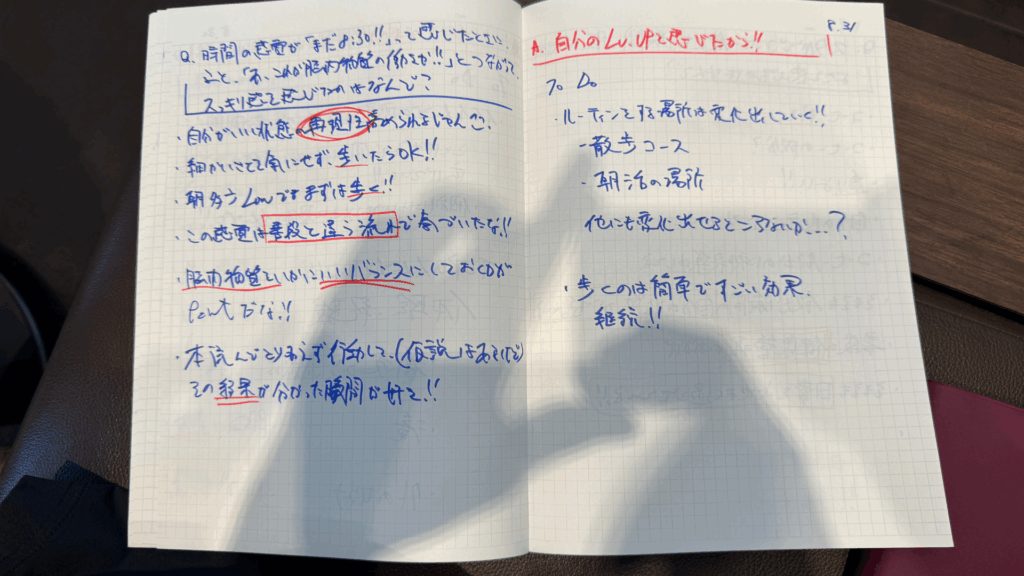 Q. 時間の感覚が「まだ8:30!!」、と感じたときに、
こと、「お、これが脳内物質の働きか!!」とつながって、
スッキリ感を感じるのはなんで?
・自分がいい状態の再現性高められるじゃんこ。
・細かいこと気にせず、歩いたらOK!!
・朝 Lowでもまずは歩く!!
・この感覚は普段と違う流れで奏でいたな!!
・脳内物質をいかにいいバランスにしておくかが
Pointだな!!
・本読んでとりあえず行動して、(仮説はあるけど)
その結果が分かった瞬間が好き!!
8.31
A. 自分のLv. UPを感じたから!!
To Do
・ルーティンをする場所は変化出していく!!
-散歩コース
・朝活の場所
他にも変化出せるところないか...?
・歩くのは簡単ですごい効果.
継続!!